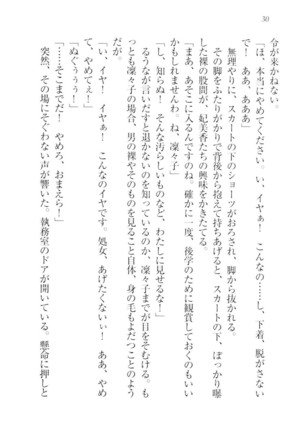 30
令が来かねない。
「ほ、本当にやめてください。い、イヤぁ！　こんなの……し、下着、脱がさないで！　ああああ」
無理やりに、スカートの下のショーツがおろされ、脚から抜かれる。
その脚をふたりがかりで背後から抱えて持ちあげると、スカートの下、ぽっかり曝した裸の股間が、妃美香たちの興味をかきたてる。
「まあ、あそこに入るんですのね。確かに一度、後学のために観賞しておくのもいいかもしれませんわ。ね、凜々子」
「し、知らぬ！　そんな汚らしいものなど、わたしに見せるな！」
るうなが言いだすと退かないのを知っているのか、凜々子までが目をそむける。もっとも凜々子の場合、男の裸やそのものを見ること自体、身の毛もよだつことのようだが。
「い、イヤ！　イヤぁ！　こんなのイヤです。処女、あげたくないぃ！　ああ、やめて、やめてぇ！」
「ぬぐぅぅぅ！」
「……そこまでだ！　やめろ、おまえら！」
突然、その場にそぐわない声が響いた。執務室のドアが開いている。懸命に押しと